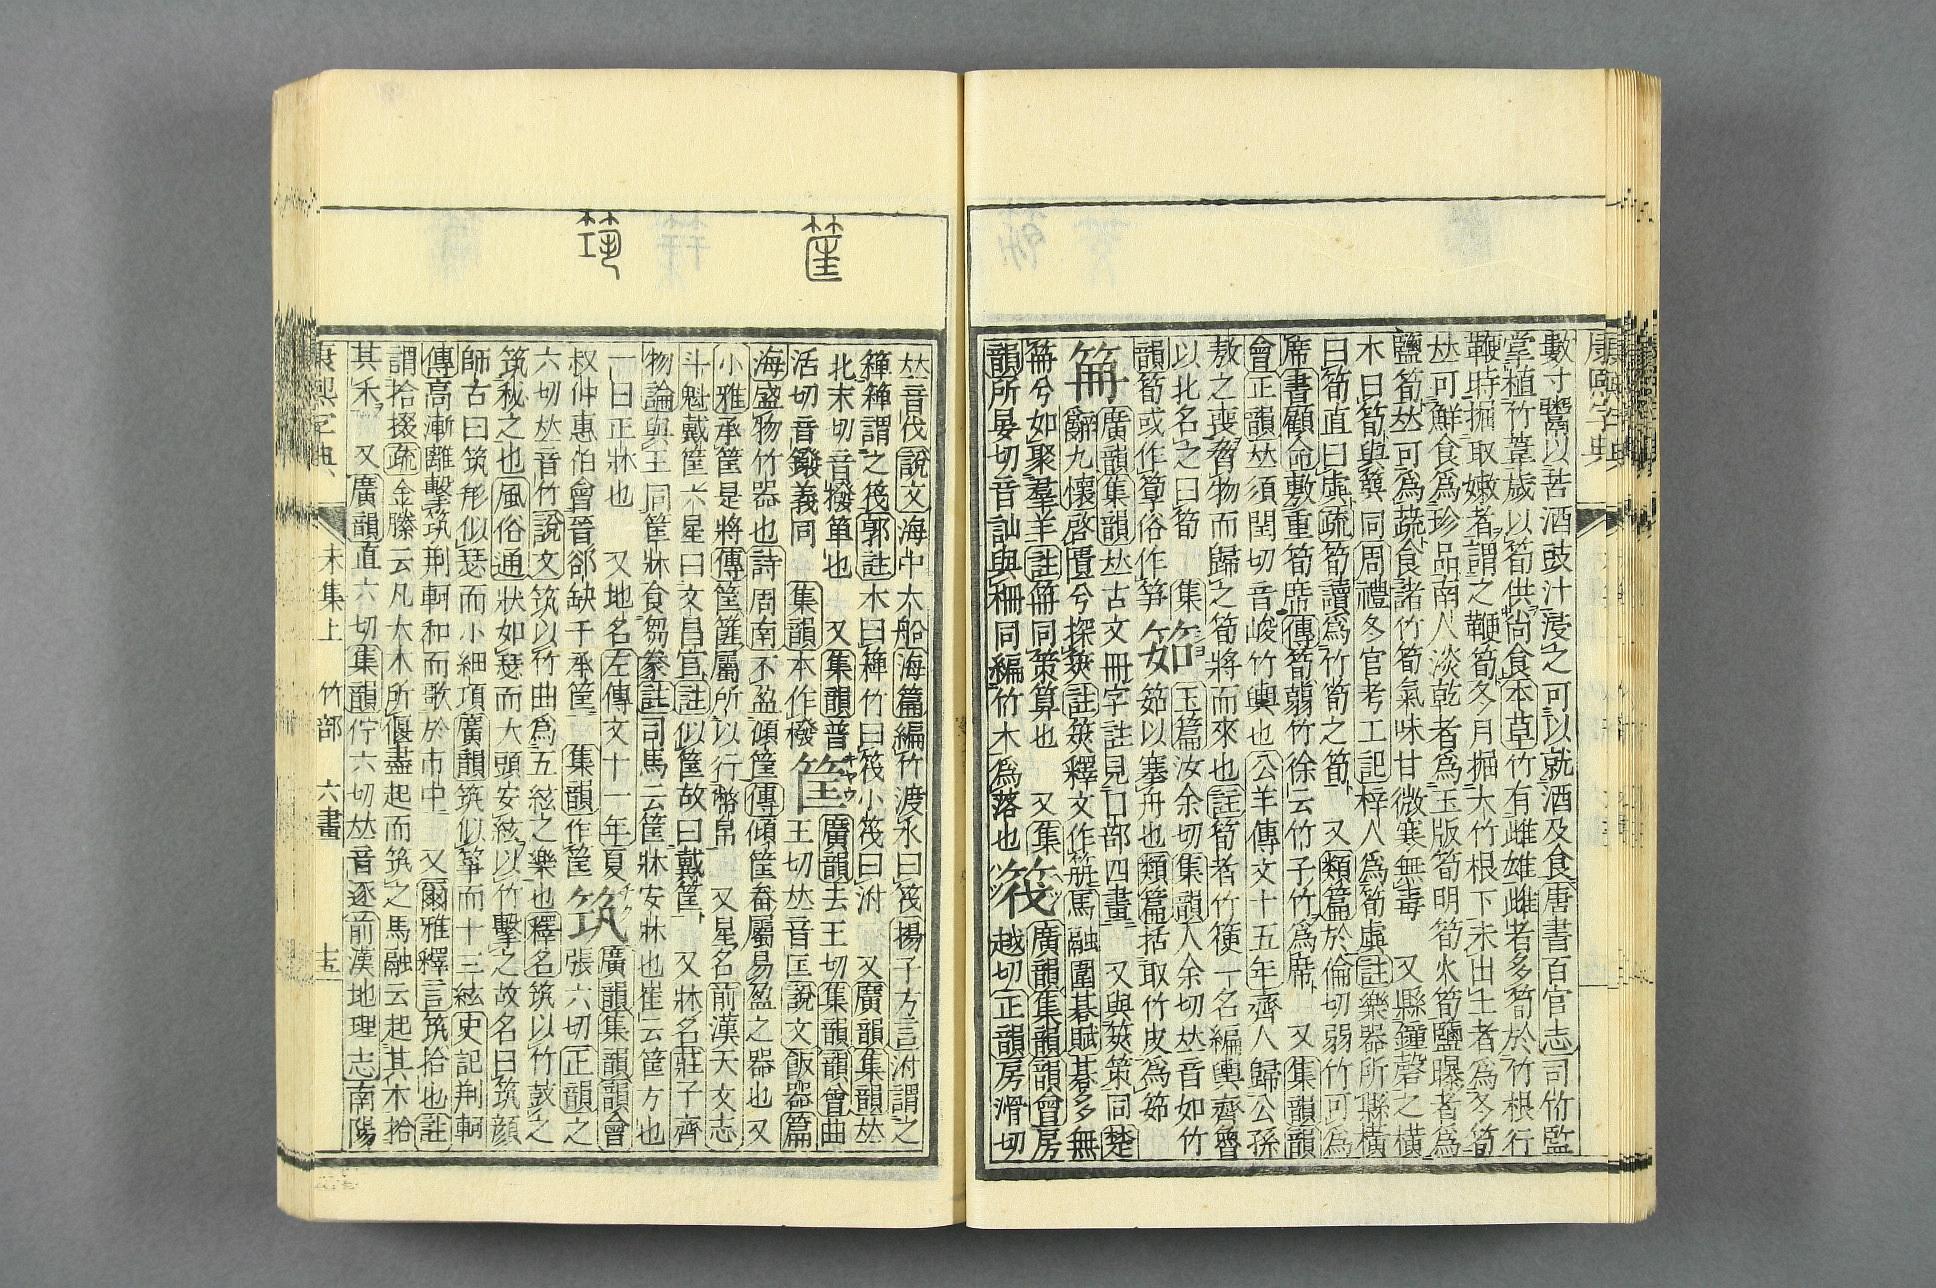 康熙字典
數寸鬻以苦酒豉汁浸之可以就酒及食唐書百官志司竹監
掌植竹葦歲以筍供尚食本草竹有雌雄雌者多筍於竹根行
鞭時掘取嫩者謂之鞭筍冬月掘大竹根下未出土者爲冬筍
𠀤可鮮食爲珍品南人淡乾者爲玉版筍明筍火筍鹽曝者爲
鹽筍𠀤可爲蔬食諸竹筍氣味甘微寒無毒 又縣鐘磬之橫
木曰筍與簨同周禮冬官考工記梓人爲筍虡註樂器所縣橫
曰筍直曰虡疏筍讀爲竹筍之筍 又類篇於倫切弱竹可爲
席書顧命敷重筍席傳筍蒻竹徐云竹子竹爲席 又集韻韻
會正韻𠀤須閏切音峻竹輿也公羊傳文十五年齊人歸公孫
敖之喪脅物而歸之筍將而來也註筍者竹箯一名編輿齊魯
以北名之曰筍 集
韻筍或作箰俗作笋
筎
玉篇汝余切集韻人余切𠀤音如竹
筎以塞舟也類篇括取竹皮爲筎
笧
廣韻集韻𠀤古文冊字註見口部四畫 又與筴策同楚
辭九懷啓匱兮探筴註筴釋文作笧馬融圍碁賦碁多無
笧兮如聚羣羊註笧同策算也 又集
韻所晏切音訕與柵同編竹木爲落也
筏
廣韻集韻韻會房
越切正韻房滑切
筐
筑
𠀤音伐說文海中大船海篇編竹渡水曰筏揚子方言泭謂之
𥴖𥴖謂之筏郭註木曰𥴖竹曰筏小筏曰泭 又廣韻集韻𠀤
北末切音撥箄也 又集韻普
活切音鏺義同 集韻本作橃
筐
キヤウ
廣韻去王切集韻韻會曲
王切𠀤音匡說文飯器篇
海盛物竹器也詩周南不盈傾筐傳傾筐畚屬易盈之器也又
小雅承筐是將傳筐篚屬所以行幣帛 又星名前漢天文志
斗魁戴筐六星曰文昌宮註似筐故曰戴筐 又牀名莊子齊
物論與王同筐牀食芻豢註司馬云筐牀安牀也崔云筐方也
一曰正牀也 又地名左傳文十一年夏
叔仲惠伯會晉郤缺于承筐 集韻作筺
筑
チク
廣韻集韻韻會
張六切正韻之
六切𠀤音竹說文筑以竹曲爲五絃之樂也釋名筑以竹鼓之
筑柲之也風俗通狀如瑟而大頭安絃以竹擊之故名曰筑顏
師古曰筑形似瑟而小細項廣韻筑似箏而十三絃史記荆軻
傳高漸離擊筑荆軻和而歌於市中 又爾雅釋言筑拾也註
謂拾掇疏金縢云凡大木所偃盡起而筑之馬融云起其木拾
其禾 又廣韻直六切集韻佇六切𠀤音逐前漢地理志南陽
康熙字典 未集上 竹部 六畫 十五